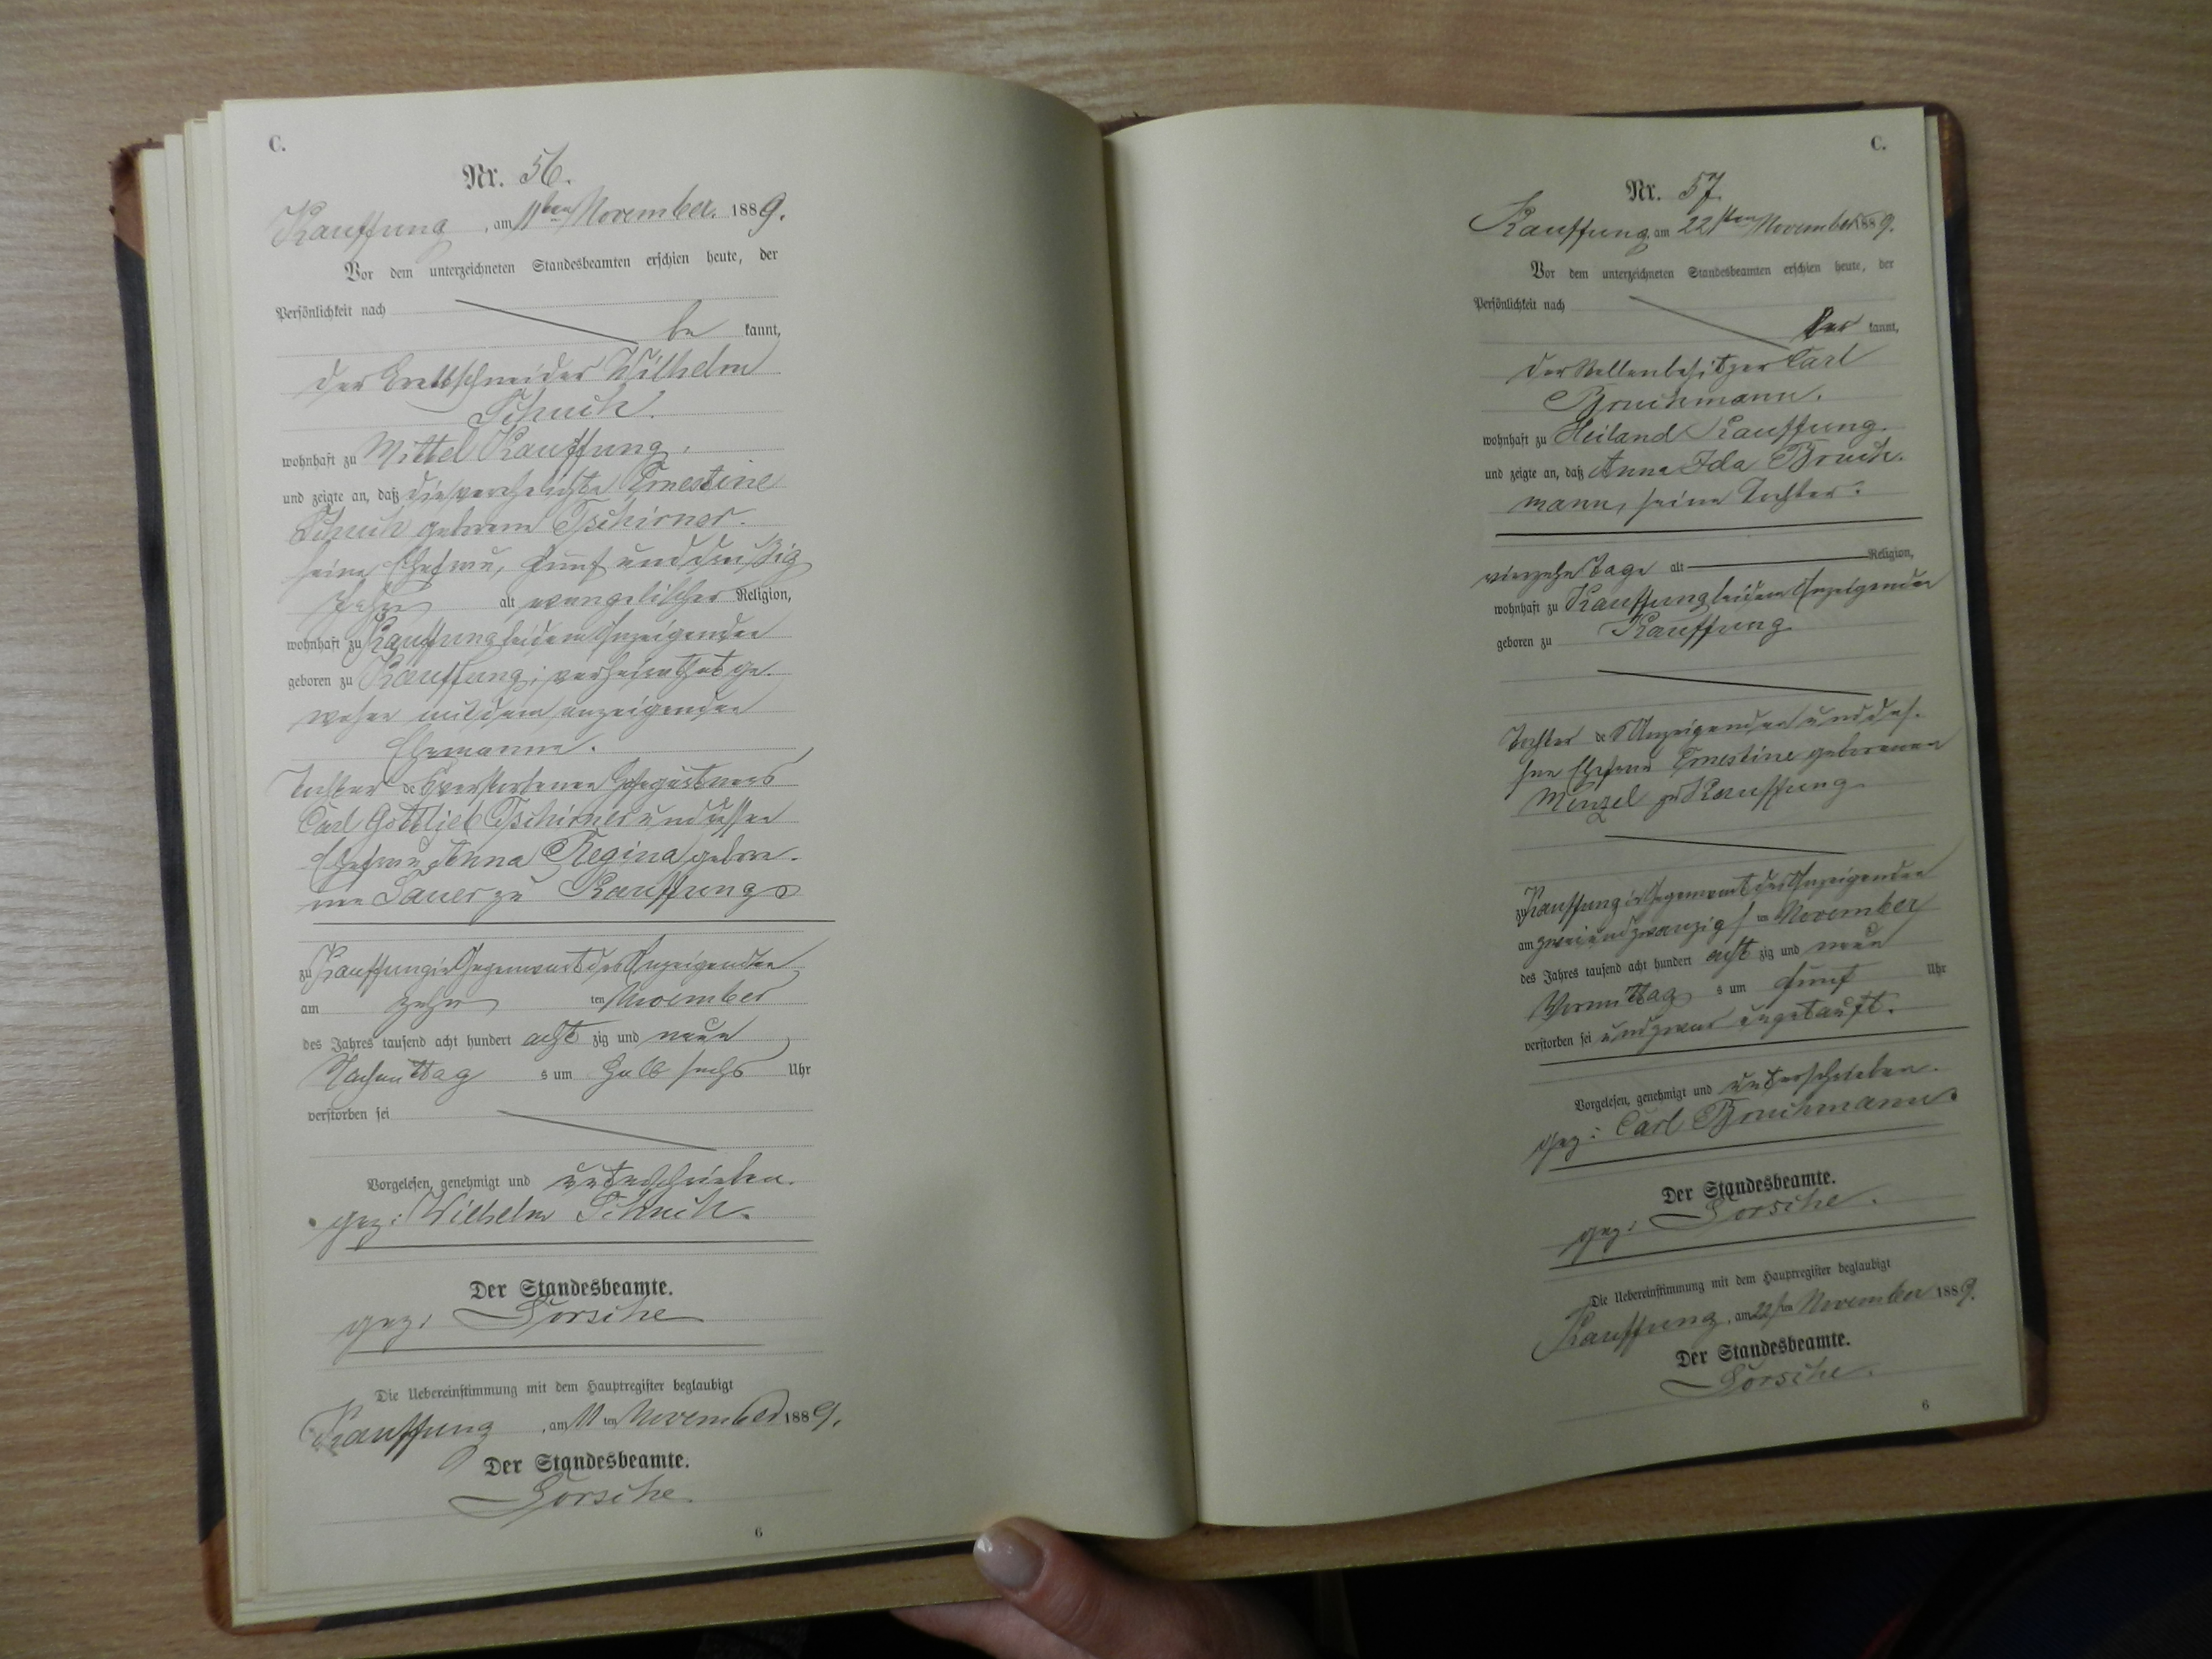 C.
Nr. 56.
Kauffung, am 11ten November 1889.
Vor dem unterzeichneten Standesbeamten erschien heute, der
Persönlichkeit nach
be kannt,
der Brettschneider Wilhelm
Schuch.
wohnhaft zu Mittel Kauffung,
und zeigte an, daß die verehelichte Ernestine
Schuch geborene Tschirner.
seine Ehefrau, fünf und dreißig
Jahre alt evangelischer Religion,
wohnhaft zu Kauffung bei dem Anzeigenden
geboren zu Kauffung, verheirathet ge-
wesen mit dem anzeigenden
Ehemanne.
Tochter des verstorbenen Hofegärtners
Carl Gottlieb Tschirner und dessen
Ehefrau Anna Regina gebore-
nen Sauer zu Kauffung
zu Kauffung in Gegenwart des Anzeigenden
am zehn ten November
des Jahres tausend acht hundert acht zig und neun
Nachmittag s um halb sechs Uhr
verstorben sei
Vorgelesen, genehmigt und unterschrieben.
gez: Wilhelm Schuch.
Der Standesbeamte.
gez: Sorsche
Die Uebereinstimmung mit dem Hauptregister beglaubigt
Kauffung, am 11ten November 1889.
Der Standesbeamte.
Sorsche
6
C.
Nr. 57
Kauffung am 22sten November 1889.
Vor dem unterzeichneten Standesbeamten erschien heute, der
Persönlichkeit nach
kannt,
der Stellenbesitzer Carl
Bruchmann.
wohnhaft zu Heiland Kauffung.
und zeigte an, daß Anna Ida Bruch-
mann, seine Tochter.
vierzehn Tage alt Religion,
wohnhaft zu Kauffung bei dem Anzeigenden
geboren zu Kauffung
Tochter des Anzeigenden und des-
sen Ehefrau Ernestine geborenen
Menzel zu Kauffung
zu Kauffung in Gegenwart des Anzeigenden
am zweiundzwanzigsten November
des Jahres tausend acht hundert acht zig und neun
Vormittag s um fünf Uhr
verstorben sei und zwar ungetauft.
Vorgelesen, genehmigt und unterschrieben.
gez: Carl Bruchmann.
Der Standesbeamte.
gez: Sorsche.
Die Uebereinstimmung mit dem Hauptregister beglaubigt
Kauffung, am 22sten November 1889.
Der Standesbeamte.
Sorsche.
6